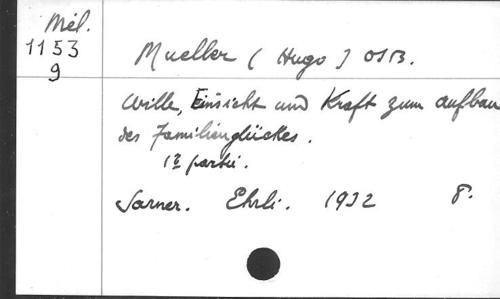 Mél.
1153
9
Mueller (Hugo) OSB.
Wille, Einsicht und Kraft zum aufbau
des Familienglückes.
1e partie.
Sarner. Ehrli. 1932 8.